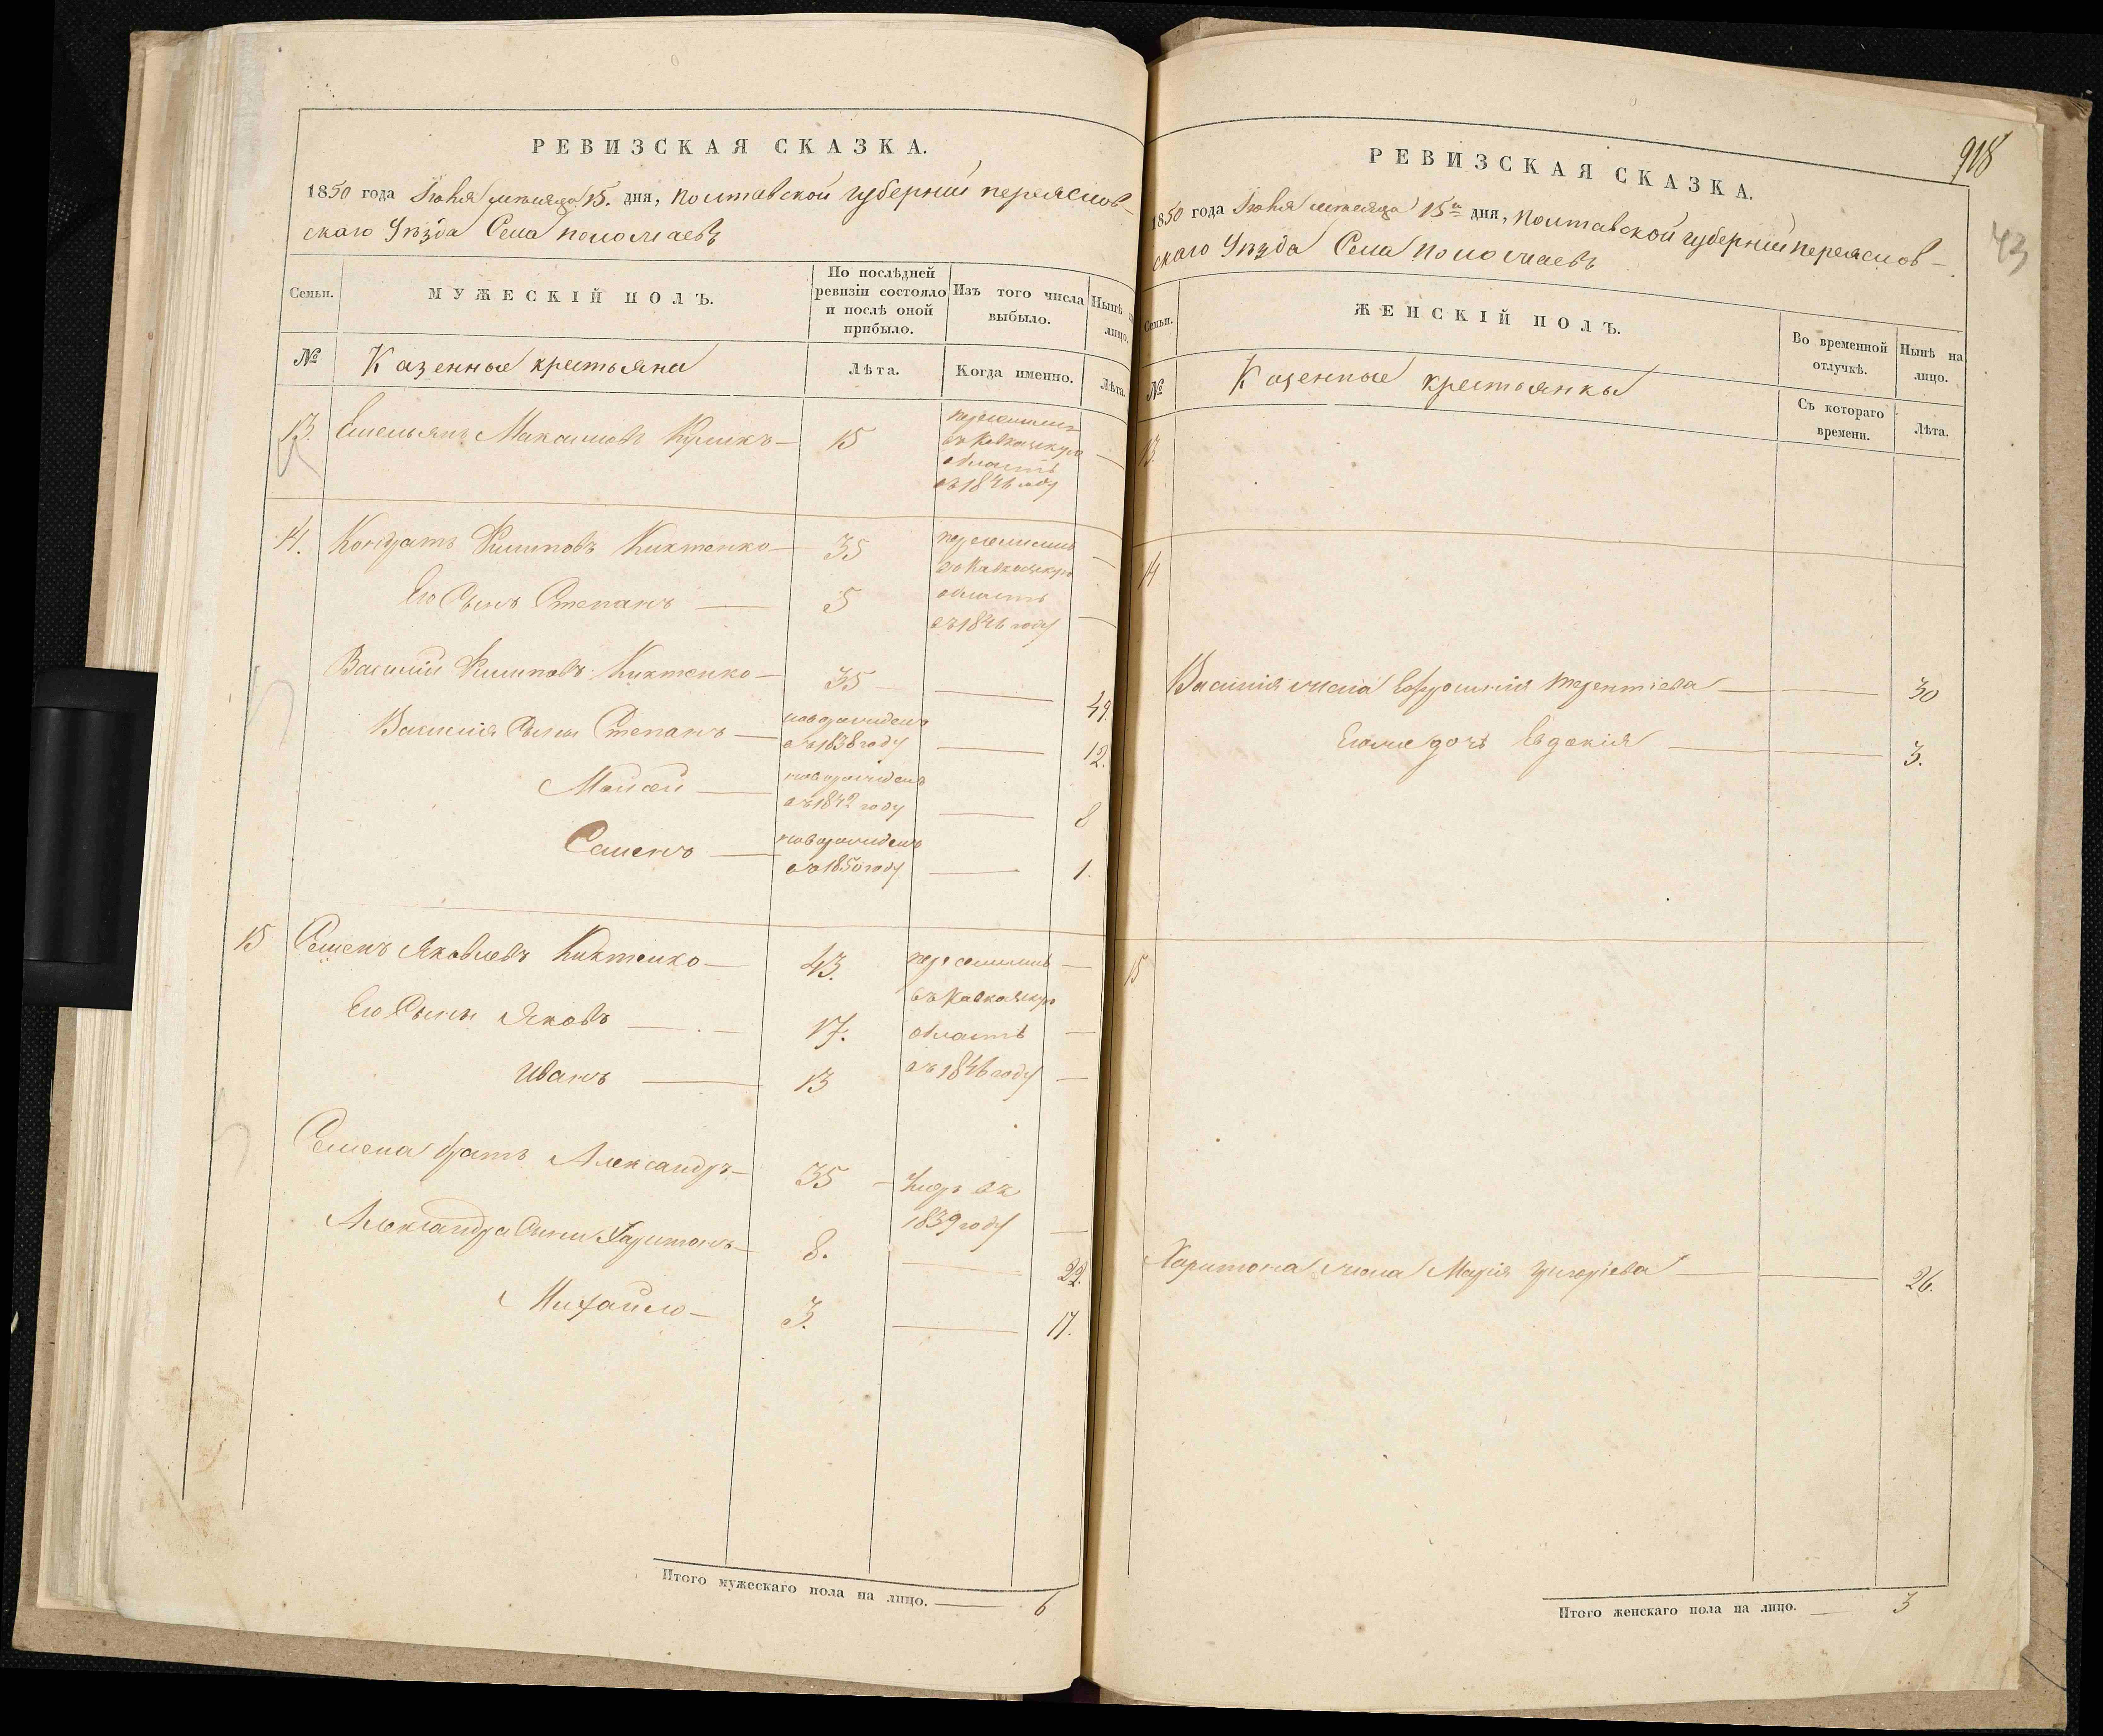 РЕВИЗСКАЯ СКАЗКА.
1850 года Іюня месяца 15. дня, Полтавской губерніи переяслов-
скаго Уѣзда Села
Семьи.
МУЖЕСКІЙ ПОЛЪ.
По послѣдней ревизіи состояло и послѣ оной прибыло.
Изъ того числа выбыло.
Нынѣ на лицо.
№
Казенные крестьяне
Лѣта.
Когда именно.
Лѣта.
13. Емельянъ Максимовъ Куликъ — 15 переселенъ —
въ Кавказскую
область
въ 1846 году
14. Кондратъ Филиповъ Киктенко — 35 переселенъ —
въ Кавказскую
Его Сынъ Степанъ — 5 область —
въ 1846 году
Василій Филиповъ Киктенко — 35 — 49.
Василія Сыны Степанъ — новорожденъ
въ 1838 году — 12.
Мойсей — новорожденъ
въ 1842 году — 8
Семенъ — новорожденъ
въ 1850 году — 1.
15 Семенъ Яковлевъ Киктенко — 43. переселенъ —
въ Кавказскую
Его Сыны Яковъ — 17. область —
Иванъ — 13 въ 1846 году —
Семена братъ Александръ — 35 — Умръ въ
1839 году —
Александра Сыны Харитонъ — 8. — 22.
Михайло — 3. — 17.
Итого мужескаго пола на лицо. — 6
918
43
РЕВИЗСКАЯ СКАЗКА.
1850 года Іюня месяца 15го дня, Полтавской губерніи переяслов-
скаго Уѣзда Села
Семьи.
ЖЕНСКІЙ ПОЛЪ.
Во временной отлучкѣ.
Нынѣ на лицо.
№
Казенные крестьянки
Съ котораго времени.
Лѣта.
13.
14
Василія жена Ефросинія Терентіева — — 30
Егоже дочь Евдокія — — 3.
15
Харитона жена Марія Григоріева — — 26.
Итого женскаго пола на лицо. — 3